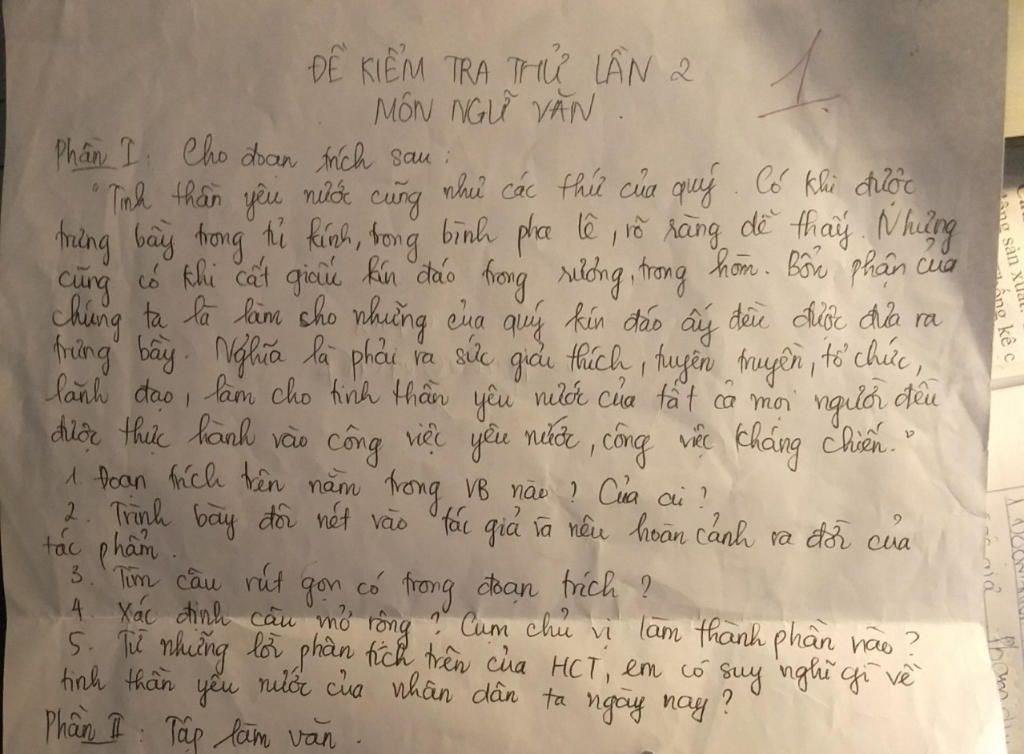 ĐỀ KIỂM TRA THỬ LẦN 2
MÔN NGỮ VĂN.
1
Phần I: Cho đoạn trích sau:
"Tinh thần yêu nước cũng như các thứ của quý. Có khi được
trưng bầy trong tủ kính, trong bình pha lê, rõ ràng dễ thấy. Nhưng
cũng có khi cất giấu kín đáo trong rương, trong hòm. Bổn phận của
chúng ta là làm cho những của quý kín đáo ấy đều được đưa ra
trưng bầy. Nghĩa là phải ra sức giải thích, tuyên truyền, tổ chức,
lãnh đạo, làm cho tinh thần yêu nước của tất cả mọi người đều
được thực hành vào công việc yêu nước, công việc kháng chiến."
1. Đoạn trích trên nằm trong VB nào? Của ai?
2. Trình bày đôi nét vào tác giả và nêu hoàn cảnh ra đời của
tác phẩm.
3. Tìm câu rút gọn có trong đoạn trích?
4. Xác định câu mở rộng? Cụm chủ vị làm thành phần nào?
5. Từ những lời phân tích trên của HCT, em có suy nghĩ gì về
tinh thần yêu nước của nhân dân ta ngày nay?
Phần II: Tập làm văn.